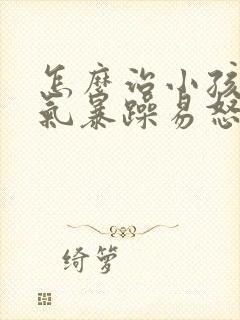 怎麼治小孩
氣暴躁易怒
綺夢